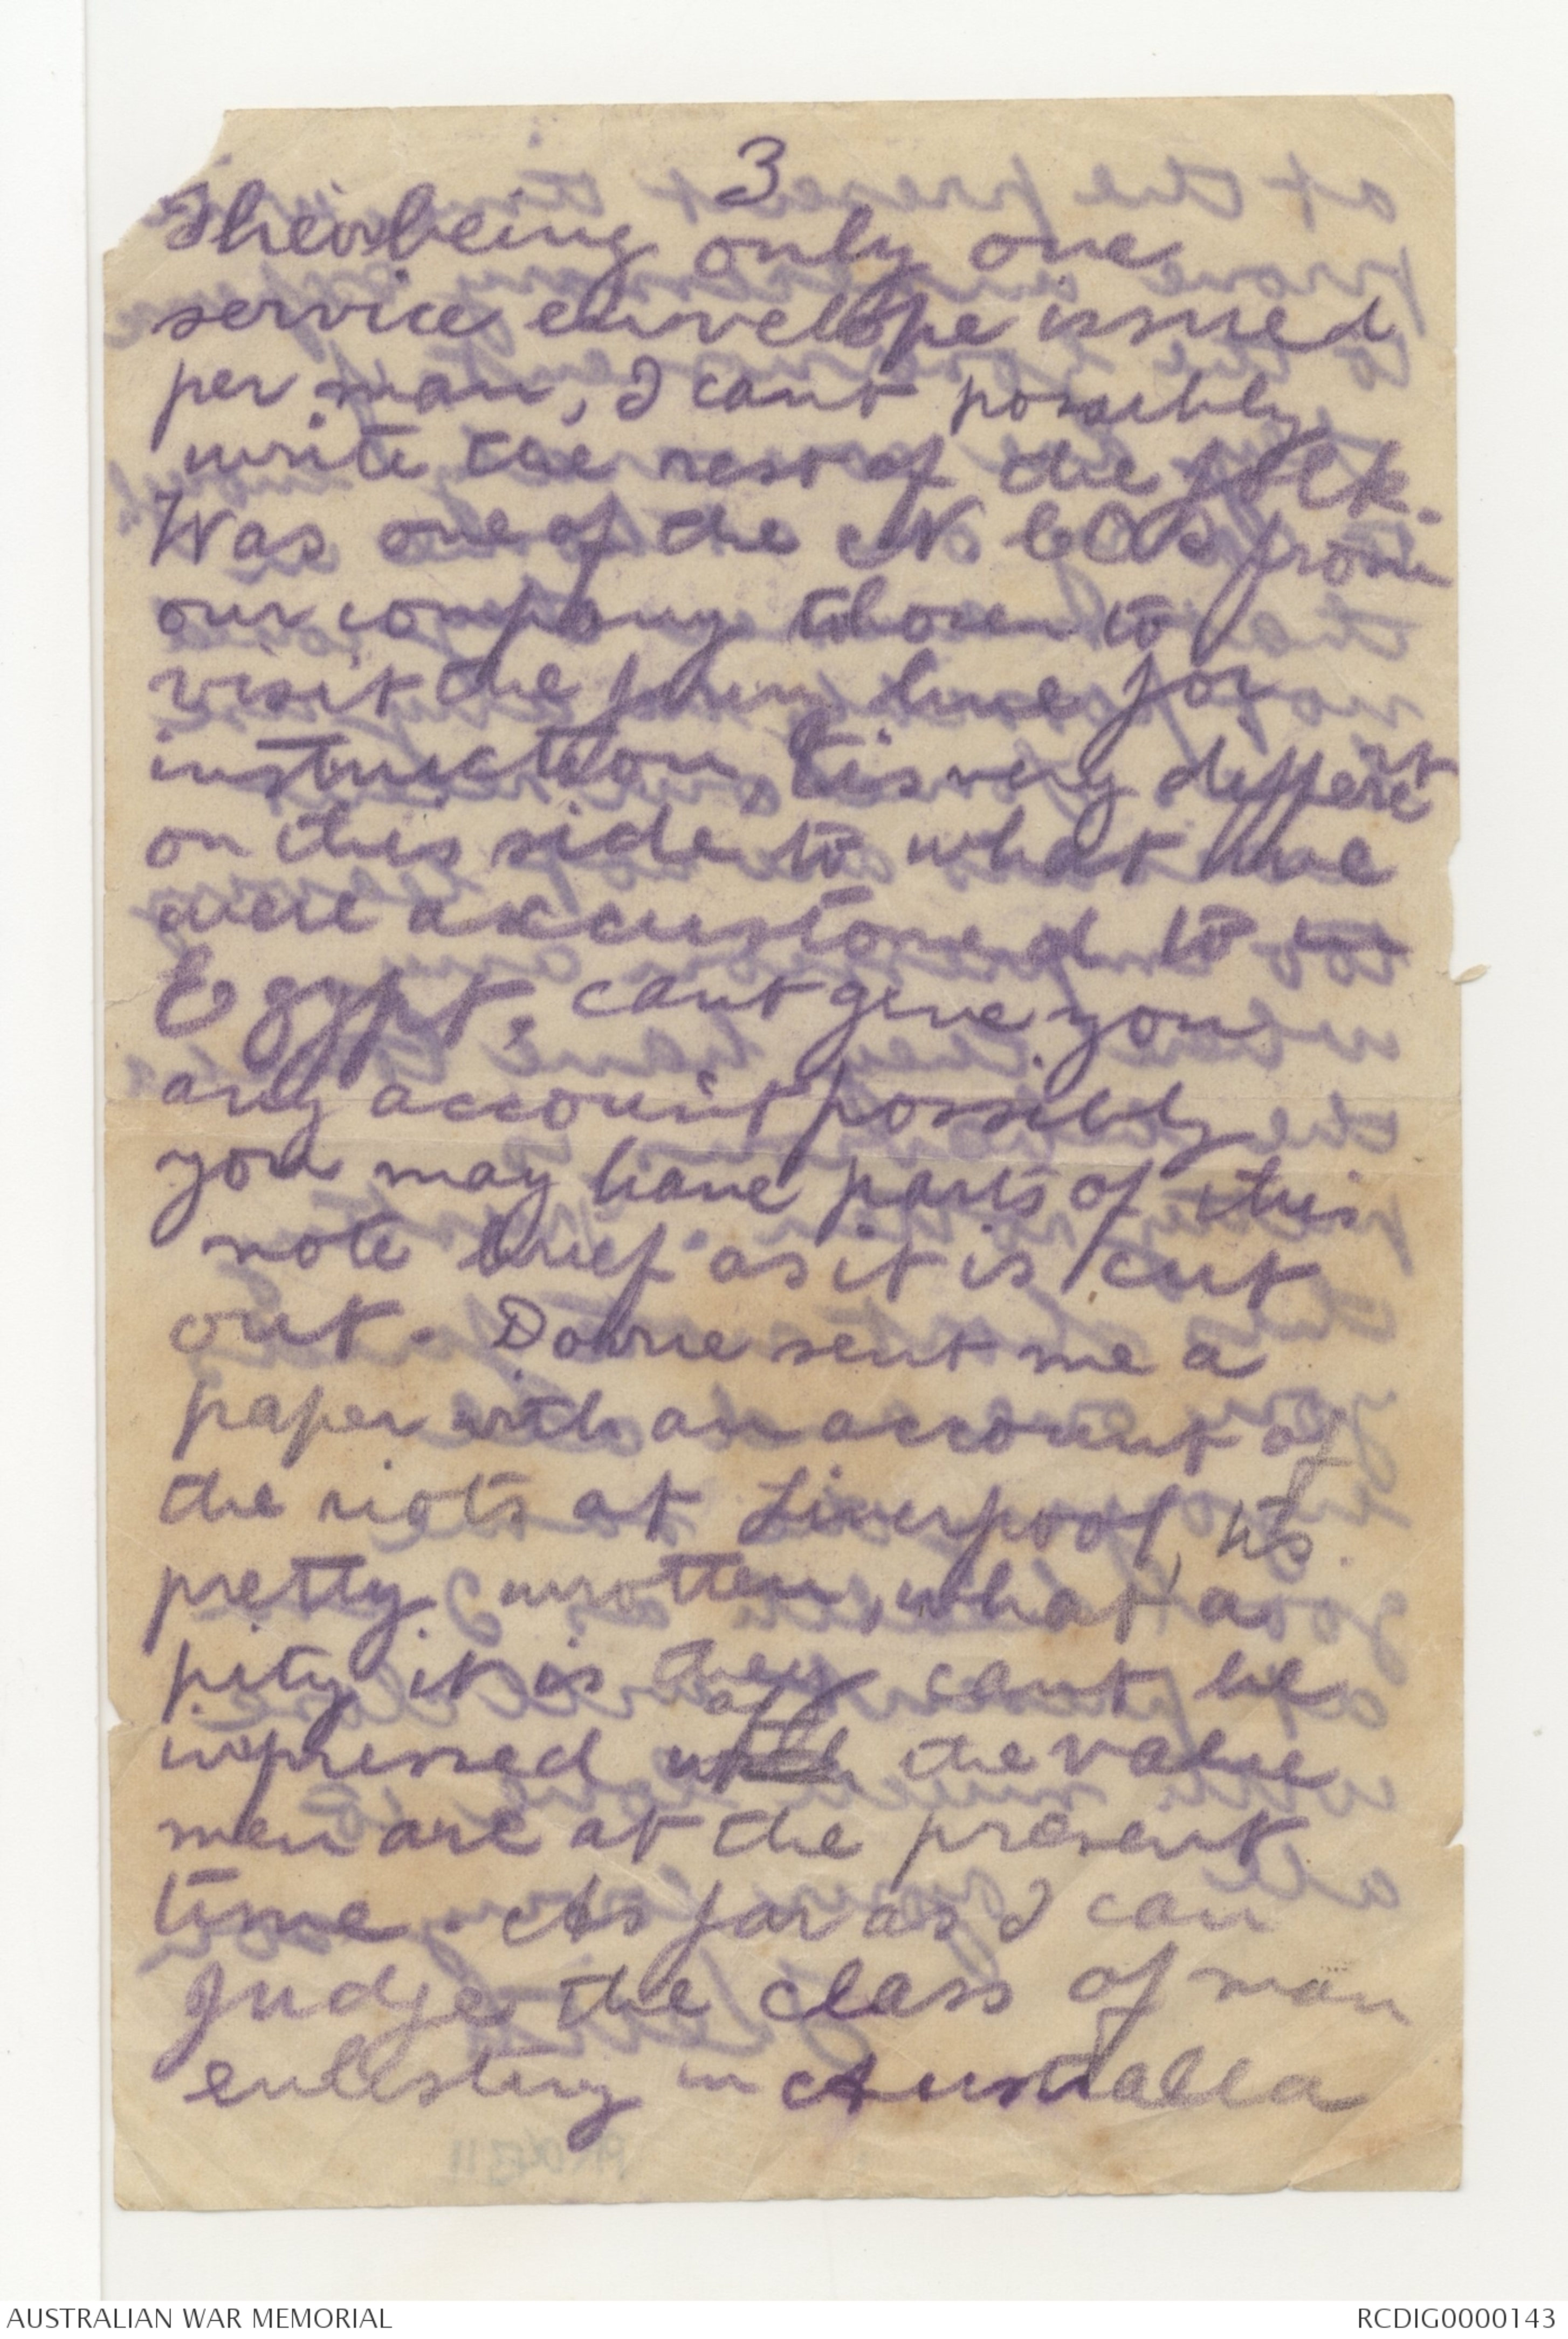 3
Their being only one
service envelope issued
per man, I cant possibly
write the rest of the folk.
Was one of the N C Os from
our company chosen to
visit the firing line for
instruction, tis very differint
on this side to what we
were accustomed to in
Egypt, cant give you
any account possibly
you may have parts of this
note brief as it is cut
out. Dorrie sent me a
paper with an account of
the riots at Liverpool, it's
pretty rotten, what a
pity it is they cant be
of
impressed with the value
men are at the present
time. As far as I can
judge the class of man
enlisting in Australia
AUSTRALIAN WAR MEMORIAL
RCDIG0000143